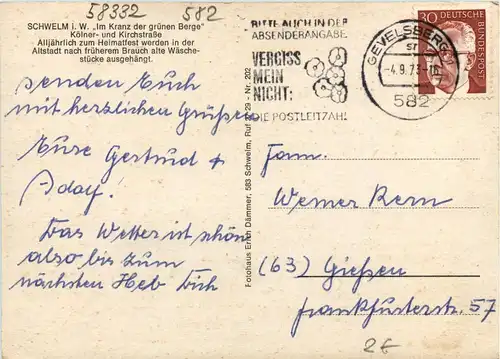 58332 582
SCHWELM i. W. „Im Kranz der grünen Berge"
Kölner- und Kirchstraße
Alljährlich zum Heimatfest werden in der
Altstadt nach früherem Brauch alte Wäsche-
stücke ausgehängt.
senden Euch
mit herzlichen Grüßen
Eure Gertrud &
Adolf!
Das Wetter ist schön
also bis zum
nächsten Heb Dich
Fotohaus Erich Dämmer, 583 Schwelm, Ruf 29 29 - Nr. 202
BITTE AUCH IN DER
ABSENDERANGABE
VERGISS
MEIN
NICHT:
DIE POSTLEITZAHL
GEVELSBERG 1
-4.9.73-
582
30 DEUTSCHE
BUNDESPOST
Fam.
Werner Kern
(63) Gießen
Frankfurterstr. 57
2€